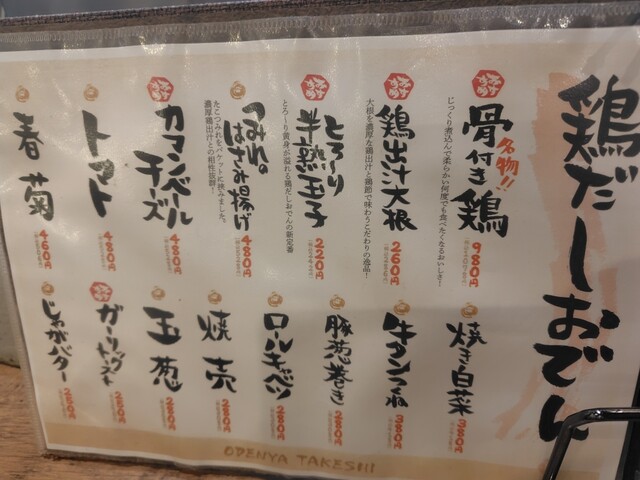 鶏だしおでん
名物!!
骨付き鶏
じっくり煮込んで柔らかい何度でも食べたくなるおいしさ!
980円
鶏出汁大根
大根を濃厚な鶏出汁と鶏節で味わうこだわりの逸品!
260円
とろ〜り
半熟玉子
とろ〜り黄身が溢れる鶏だしおでんの新定番
220円
つみれの
はさみ揚げ
たこつみれをバケットに挟みました。
濃厚鶏出汁との相性抜群!
480円
カマンベール
チーズ
480円
トマト
480円
春菊
460円
焼き白菜
380円
牛タンつくね
380円
豚葱巻き
280円
ロールキャベツ
280円
焼売
280円
玉葱
280円
ガーリック
トースト
280円
じゃがバター
280円
ODENYA TAKESHI